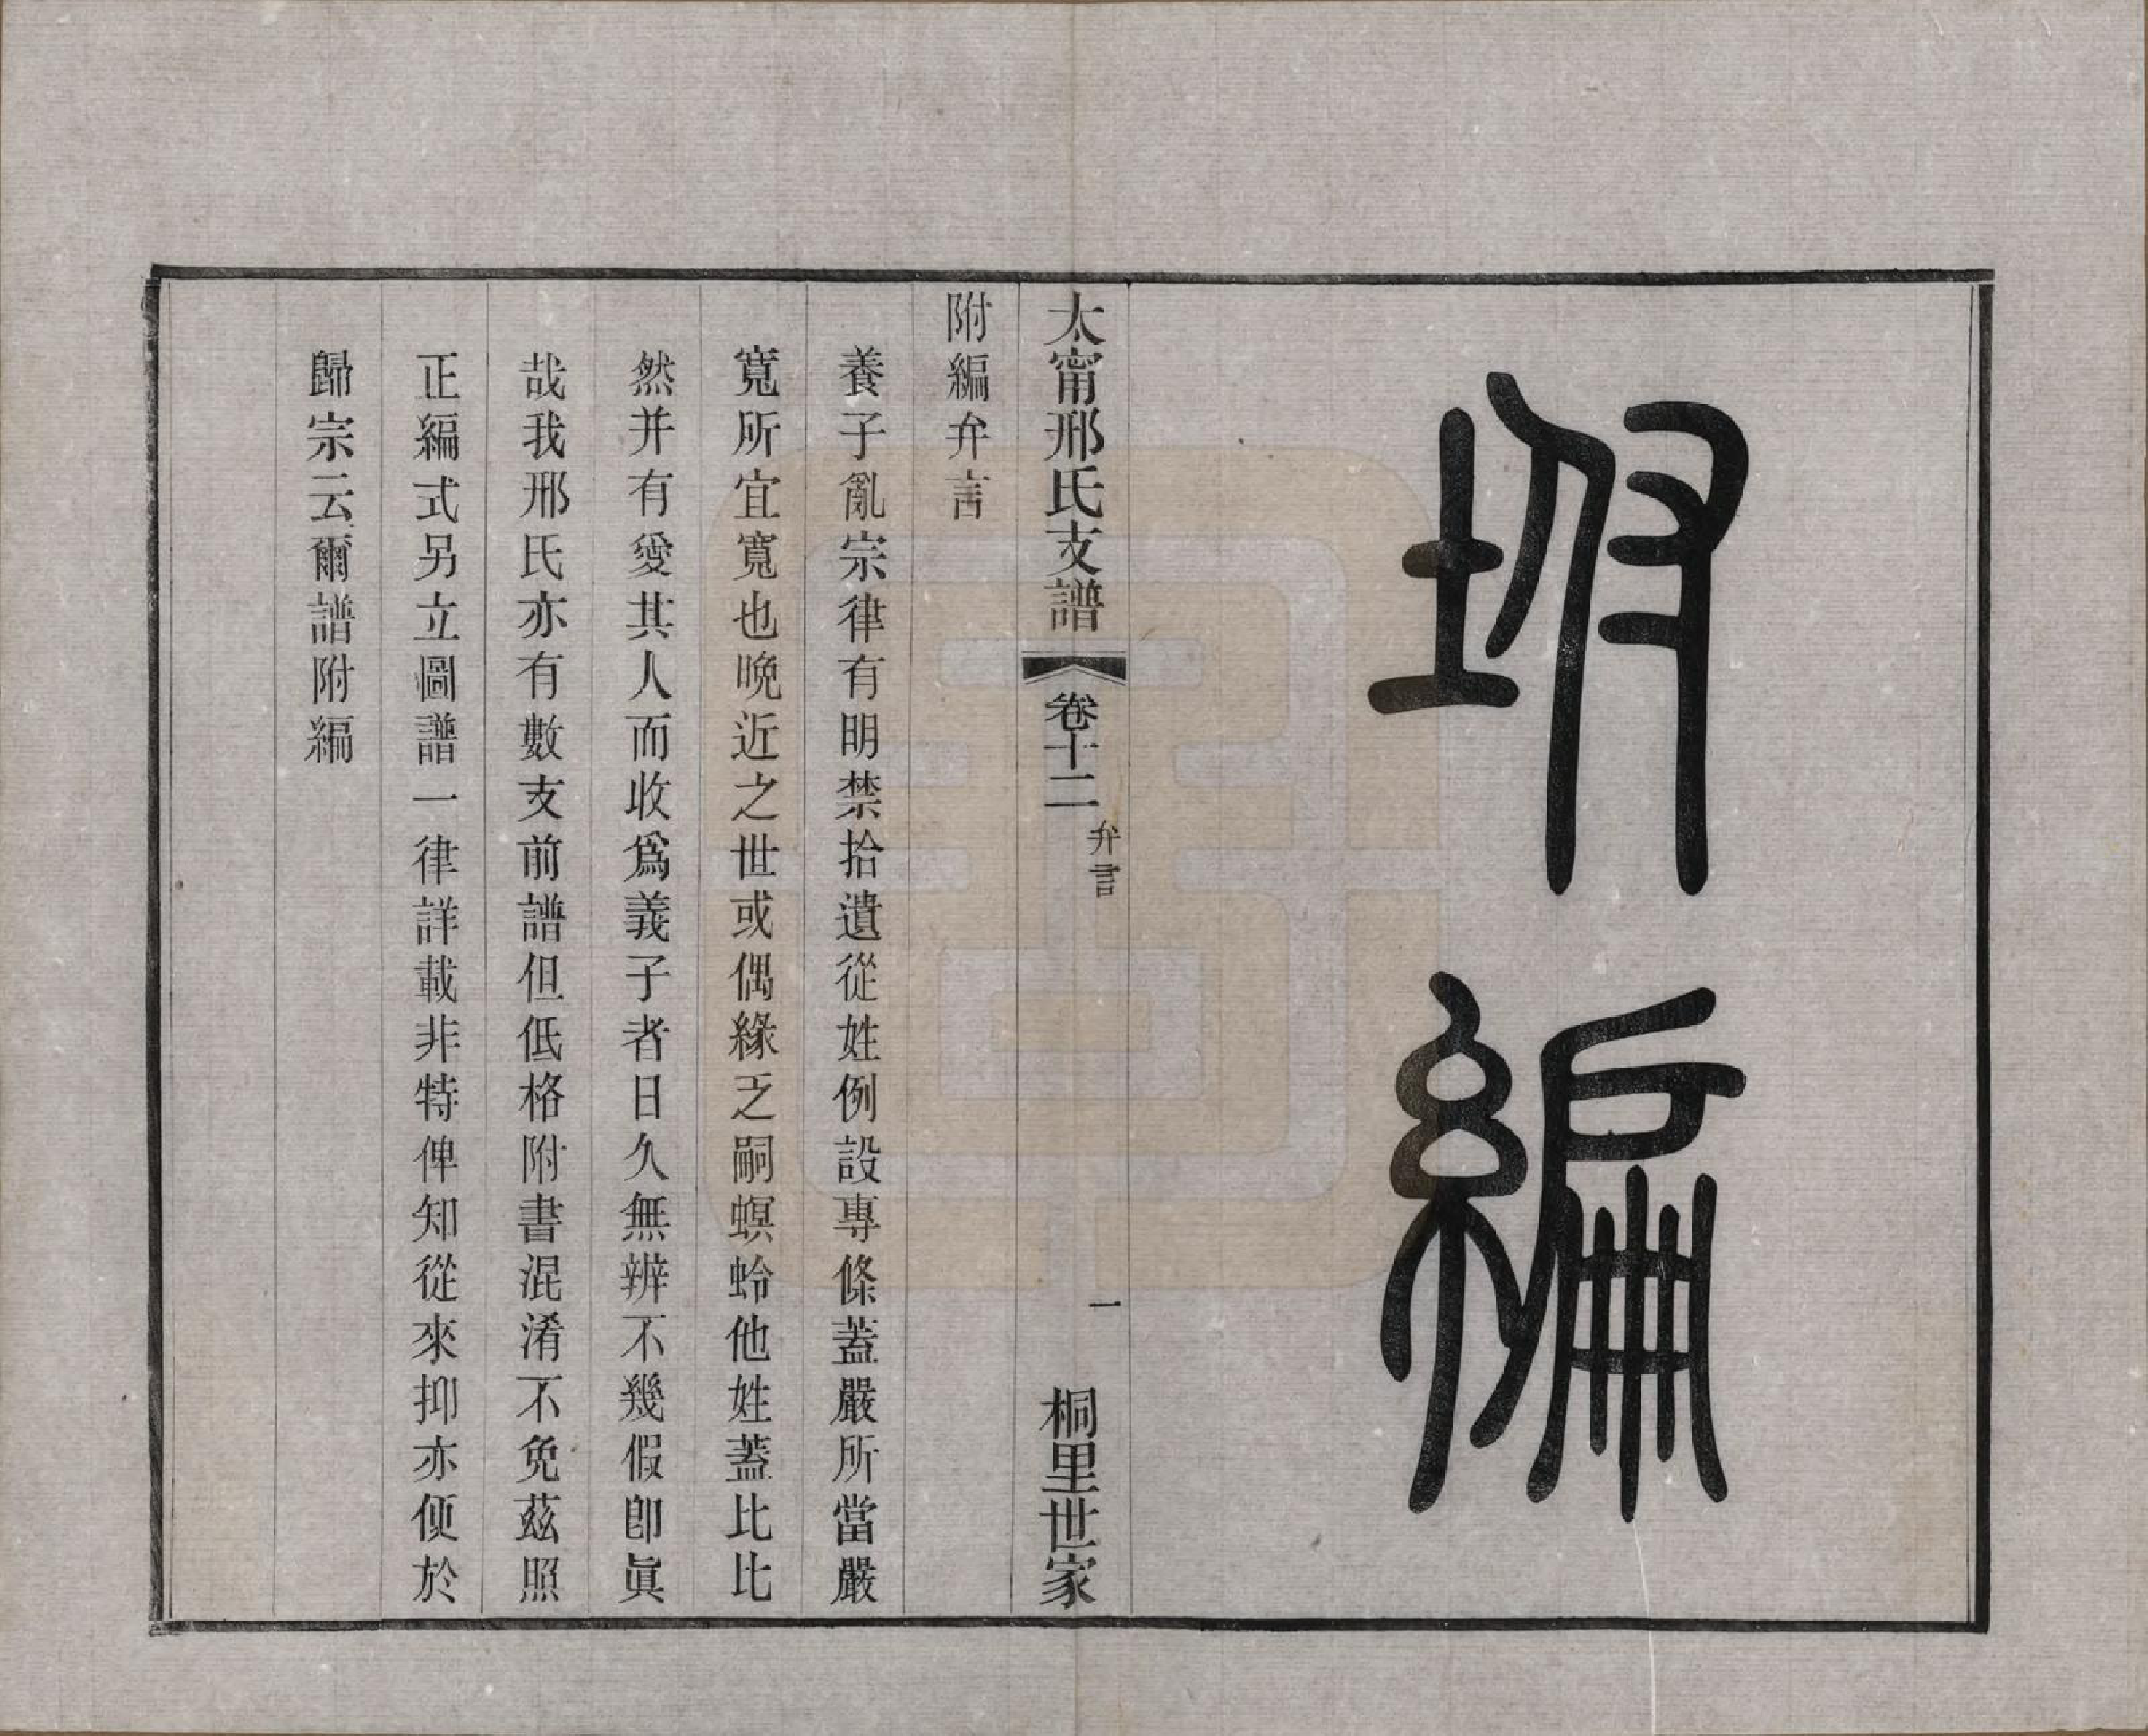 坿編
太甯邢氏支譜 卷十二 弁言 一 桐里世家
附編弁言
養子亂宗律有明禁拾遺從姓例設專條蓋嚴所當嚴
寬所宜寬也晚近之世或偶緣乏嗣螟蛉他姓蓋比比
然并有愛其人而收爲義子者日久無辨不幾假卽眞
哉我邢氏亦有數支前譜但低格附書混淆不免茲照
正編式另立圖譜一律詳載非特俾知從來抑亦便於
歸宗云爾譜附編